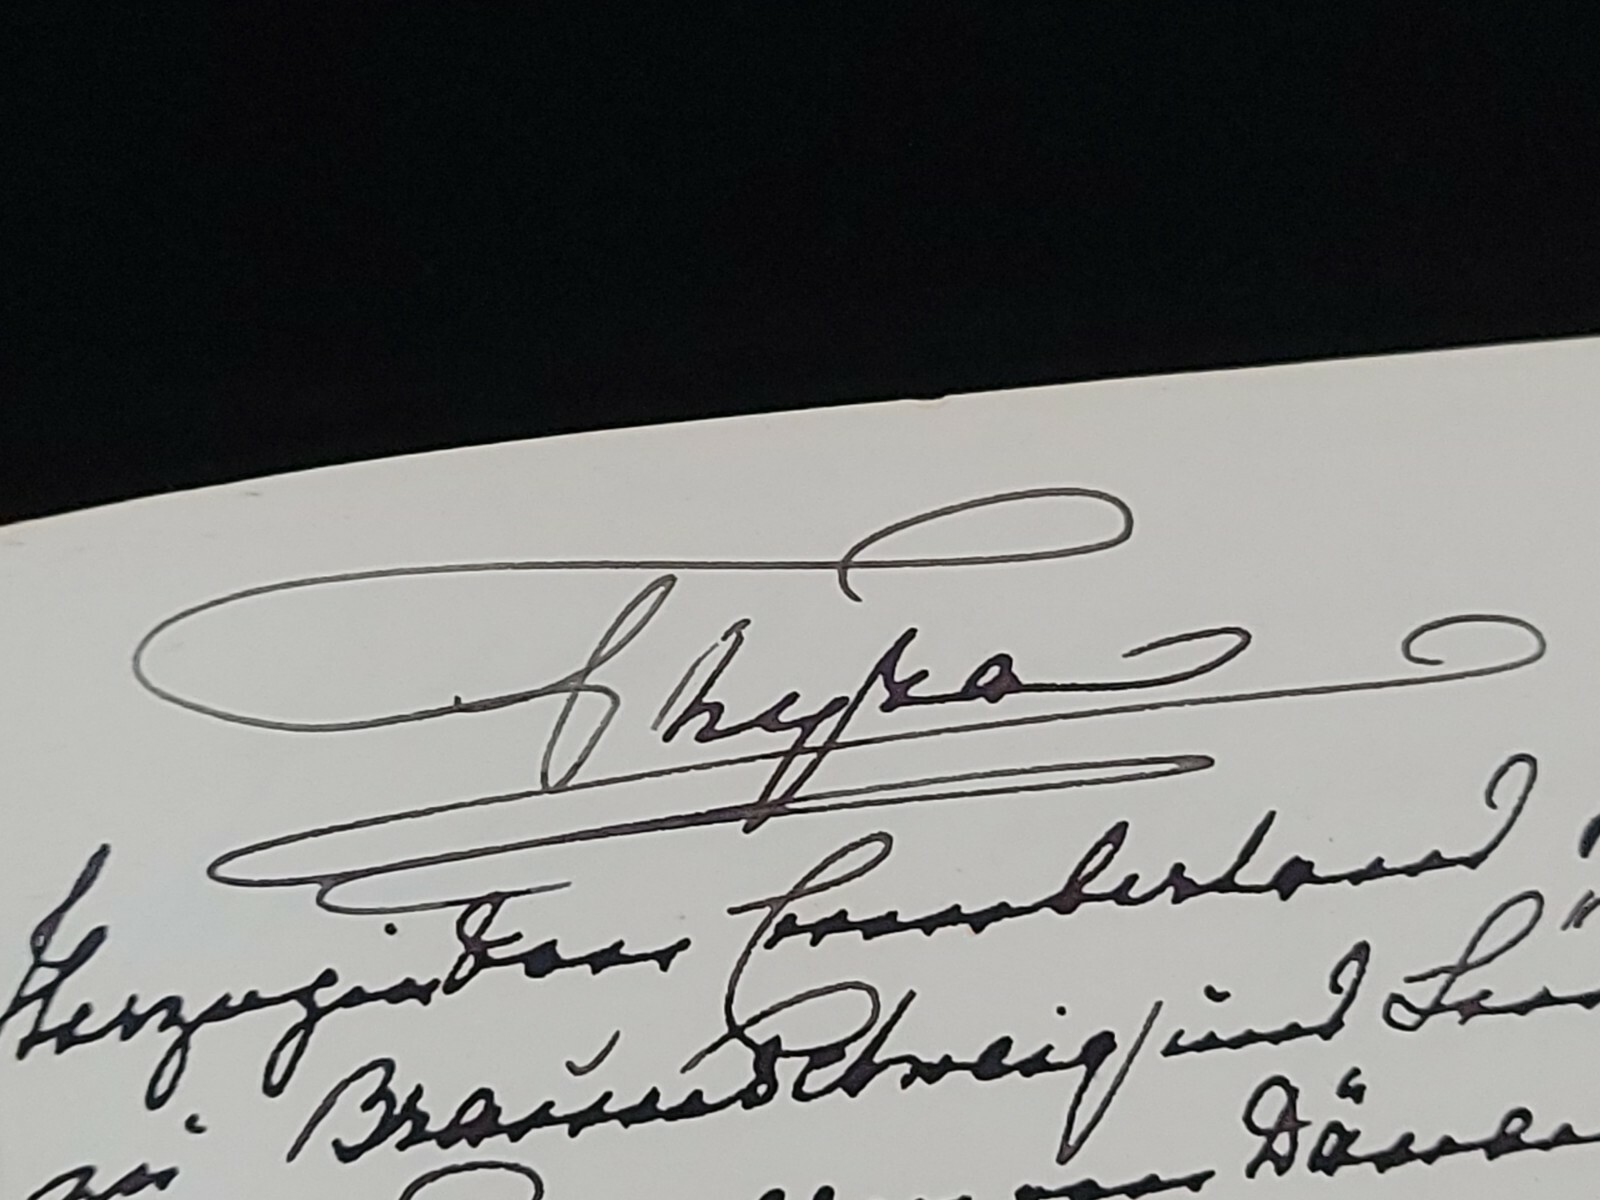 Thyra
Herzogin von Cumberland
zu Braunschweig und
von Dänen